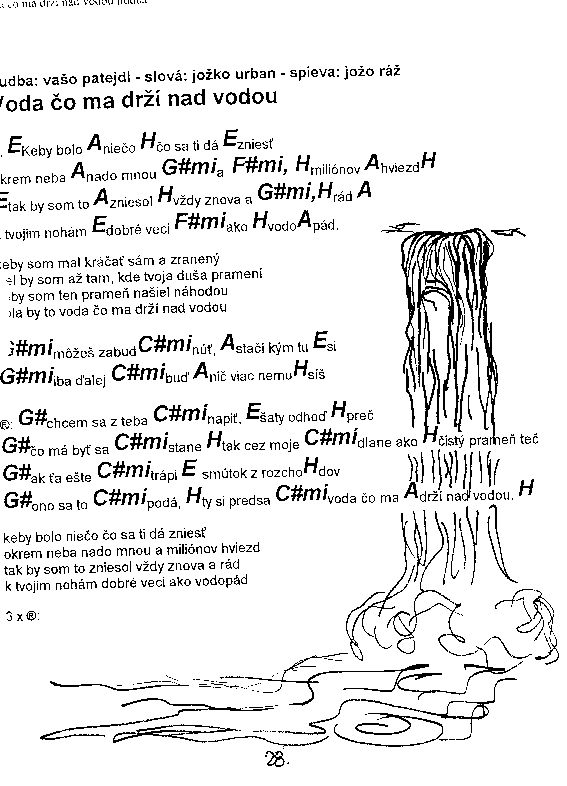 čo ma drží nad vodou hudba
udba: vašo patejdl - slová: jožko urban - spieva: jožo ráž
Voda čo ma drží nad vodou
. EKeby bolo Aniečo Hčo sa ti dá Ezniesť
krem neba Anado mnou G#mia F#mi, Hmiliónov AhviezdH
Etak by som to Azniesol Hvždy znova a G#mi,Hrád A
tvojim nohám Edobré veci F#miako HvodoApád.
eby som mal kráčať sám a zranený
el by som až tam, kde tvoja duša pramení
by som ten prameň našiel náhodou
ola by to voda čo ma drží nad vodou
G#mimôžeš zabudC#minúť, Astačí kým tu Esi
G#miiba ďalej C#mibuď Anič viac nemuHsíš
®: G#chcem sa z teba C#minapiť, Ešaty odhoď Hpreč
G#čo má byť sa C#mistane Htak cez moje C#midlane ako Hčistý prameň teč
G#ak ťa ešte C#mitrápi E smútok z rozchoHdov
G#ono sa to C#mipodá, Hty si predsa C#mivoda čo ma Adrží nad vodou. H
keby bolo niečo čo sa ti dá zniesť
okrem neba nado mnou a miliónov hviezd
tak by som to zniesol vždy znova a rád
k tvojim nohám dobré veci ako vodopád
3 x ®:
28.